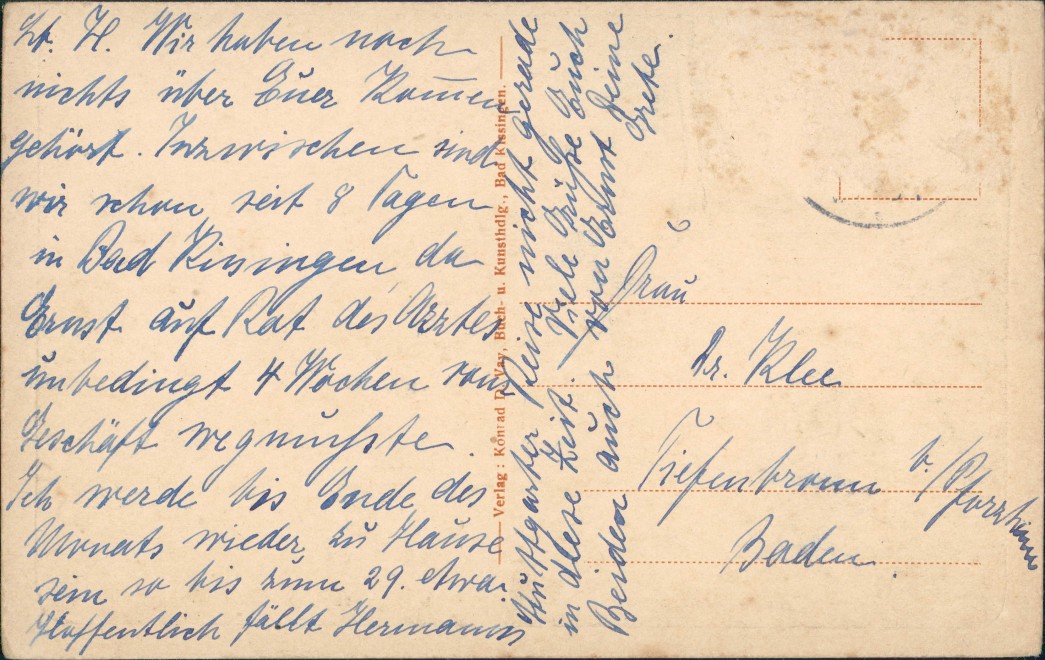 Lb. H. Wir haben noch
nichts über Euer Kom̅en
gehört. Inzwischen sind
wir schon seit 8 Tagen
in Bad Kissingen da
Ernst auf Rat des Arztes
unbedingt 4 Wochen vom
Geschäft wegmußte.
Ich werde bis Ende des
Monats wieder zu Hause
sein so bis zum 29. etwa.
Hoffentlich fällt Hermanns
Stuttgarter Reise nicht gerade
in diese Zeit. Viele Grüße Euch
Beiden auch von Ernst Deine
Grete.
— Verlag: Konrad Day, Buch- u. Kunsthdlg., Bad Kissingen. —
Frau
Dr. Klee
Tiefenbronn b/Pforzheim
Baden.